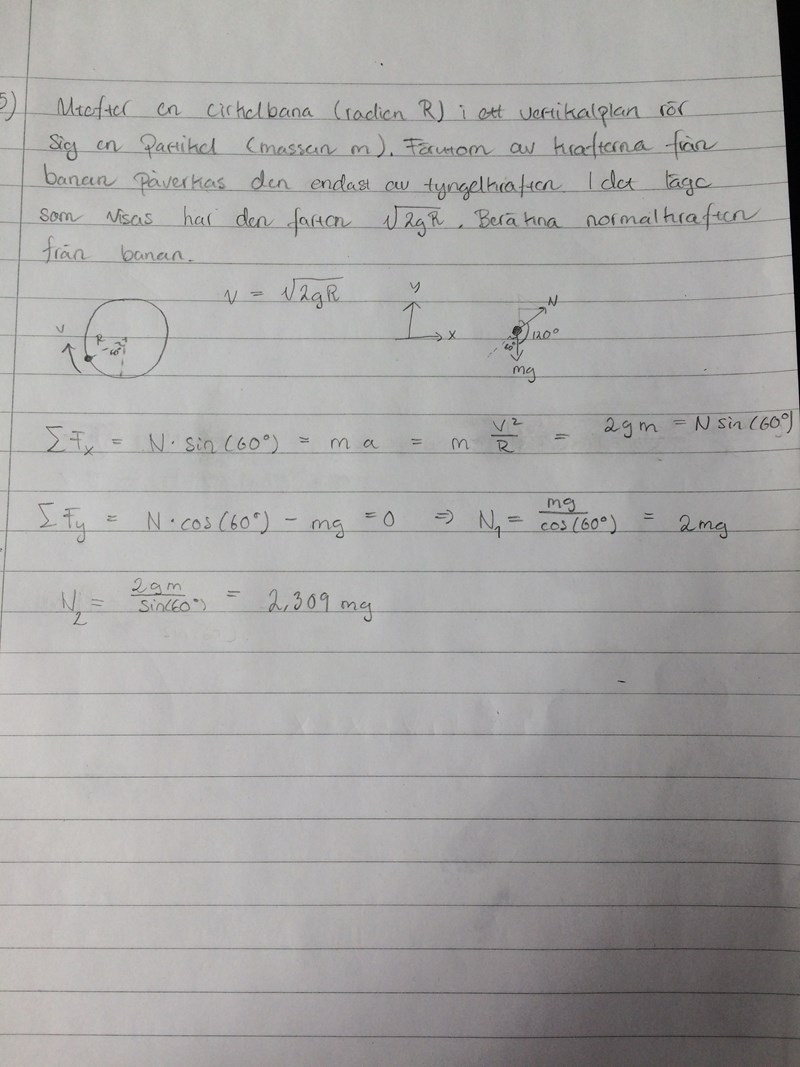 5) Utefter en cirkelbana (radien R) i ett vertikalplan rör
sig en partikel (massan m). Förutom av krafterna från
banan påverkas den endast av tyngdkraften I det läge
som visas har den farten √2gR. Beräkna normalkraften
från banan.
V = √2gR
y
x
N
120°
60°
mg
V
R
60°
ΣFx = N·sin(60°) = ma = m V²/R = 2gm = N sin(60°)
ΣFy = N·cos(60°) - mg = 0 ⇒ N₁ = mg/cos(60°) = 2mg
N₂ = 2gm/sin(60°) = 2,309 mg